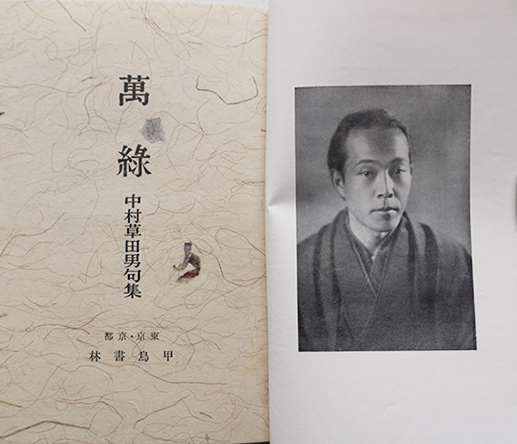 萬綠
中村草田男句集
東京・京都
甲鳥書林